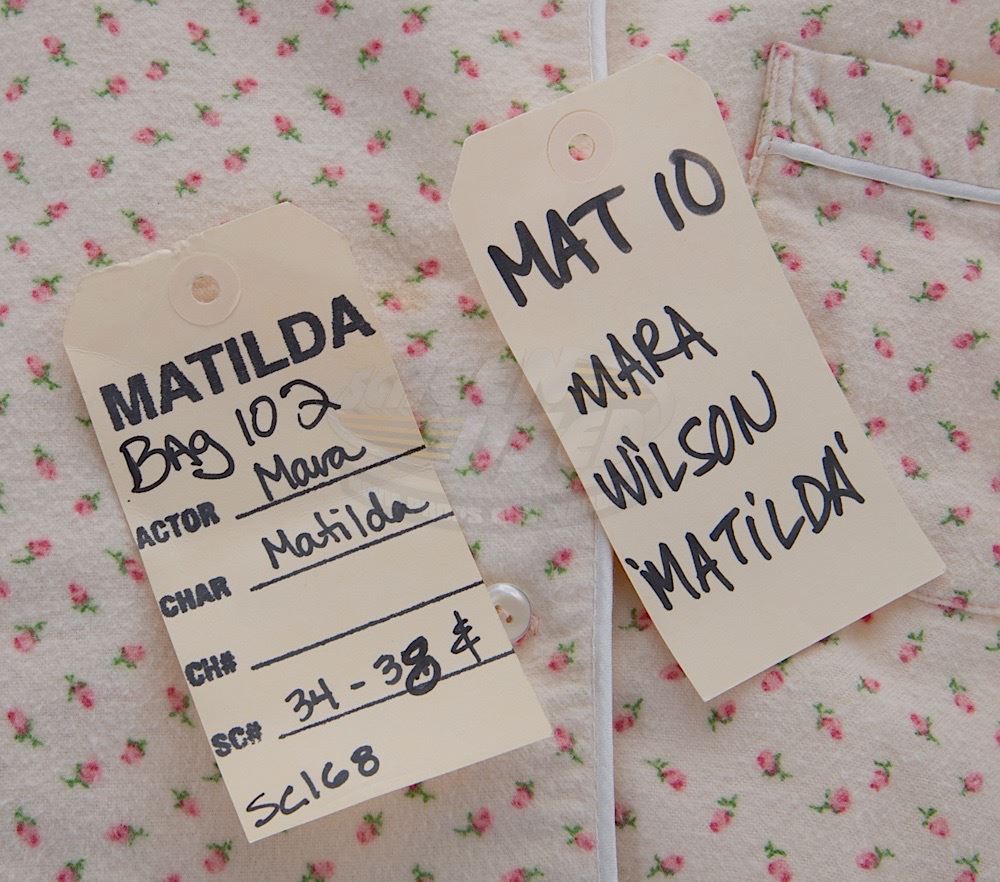 MATILDA
BAg 102
ACTOR Mara
CHAR Matilda
CH#
SC# 34 - 38 &
SC168
MAT 10
MARA
WiLSON
'MATiLDA'